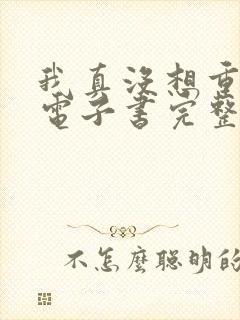 我真沒想重
電子書完整
不怎麼聰明的